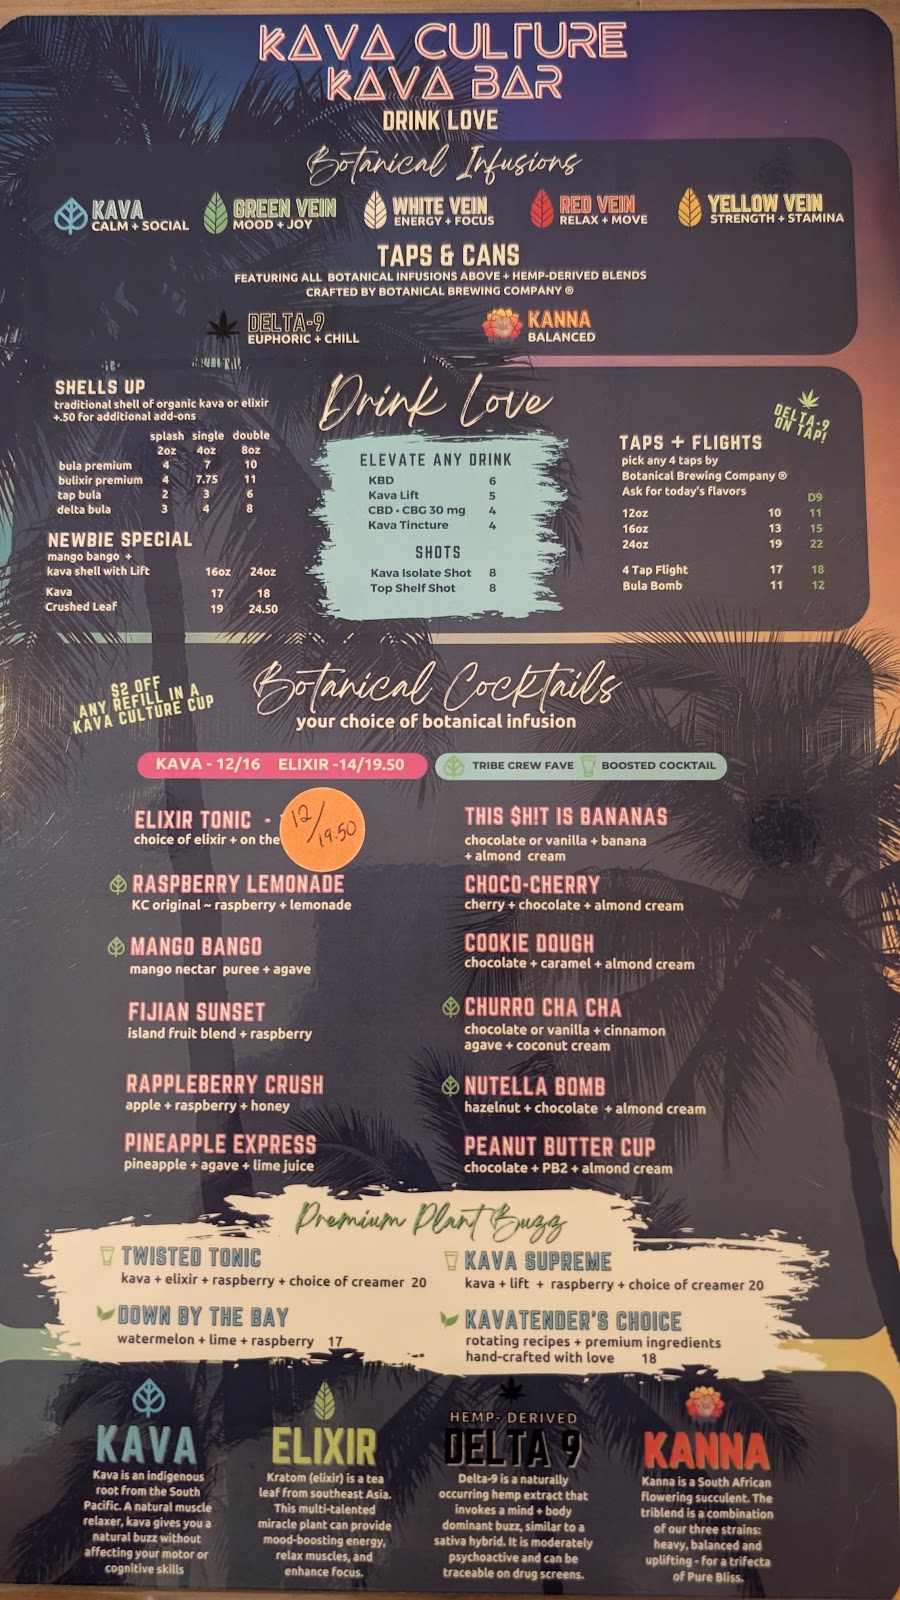 KAVA CULTURE
KAVA BAR
DRINK LOVE
Botanical Infusions
KAVA
CALM + SOCIAL
GREEN VEIN
MOOD + JOY
WHITE VEIN
ENERGY + FOCUS
RED VEIN
RELAX + MOVE
YELLOW VEIN
STRENGTH + STAMINA
TAPS & CANS
FEATURING ALL BOTANICAL INFUSIONS ABOVE + HEMP-DERIVED BLENDS
CRAFTED BY BOTANICAL BREWING COMPANY ®
DELTA-9
EUPHORIC + CHILL
KANNA
BALANCED
SHELLS UP
traditional shell of organic kava or elixir
+.50 for additional add-ons
splash single double
2oz 4oz 8oz
bula premium 4 7 10
bulixir premium 4 7.75 11
tap bula 2 3 6
delta bula 3 4 8
NEWBIE SPECIAL
mango bango +
kava shell with Lift 16oz 24oz
Kava 17 18
Crushed Leaf 19 24.50
Drink Love
ELEVATE ANY DRINK
KBD 6
Kava Lift 5
CBD • CBG 30 mg 4
Kava Tincture 4
SHOTS
Kava Isolate Shot 8
Top Shelf Shot 8
DELTA-9
ON TAP!
TAPS + FLIGHTS
pick any 4 taps by
Botanical Brewing Company ®
Ask for today's flavors
D9
12oz 10 11
16oz 13 15
24oz 19 22
4 Tap Flight 17 18
Bula Bomb 11 12
$2 OFF
ANY REFILL IN A
KAVA CULTURE CUP
Botanical Cocktails
your choice of botanical infusion
KAVA - 12/16 ELIXIR -14/19.50
TRIBE CREW FAVE BOOSTED COCKTAIL
ELIXIR TONIC -
12/19.50
choice of elixir + on the
RASPBERRY LEMONADE
KC original ~ raspberry + lemonade
MANGO BANGO
mango nectar puree + agave
FIJIAN SUNSET
island fruit blend + raspberry
RAPPLEBERRY CRUSH
apple + raspberry + honey
PINEAPPLE EXPRESS
pineapple + agave + lime juice
THIS $H!T IS BANANAS
chocolate or vanilla + banana
+ almond cream
CHOCO-CHERRY
cherry + chocolate + almond cream
COOKIE DOUGH
chocolate + caramel + almond cream
CHURRO CHA CHA
chocolate or vanilla + cinnamon
agave + coconut cream
NUTELLA BOMB
hazelnut + chocolate + almond cream
PEANUT BUTTER CUP
chocolate + PB2 + almond cream
Premium Plant Buzz
TWISTED TONIC
kava + elixir + raspberry + choice of creamer 20
DOWN BY THE BAY
watermelon + lime + raspberry 17
KAVA SUPREME
kava + lift + raspberry + choice of creamer 20
KAVATENDER'S CHOICE
rotating recipes + premium ingredients
hand-crafted with love 18
KAVA
Kava is an indigenous
root from the South
Pacific. A natural muscle
relaxer, kava gives you a
natural buzz without
affecting your motor or
cognitive skills
ELIXIR
Kratom (elixir) is a tea
leaf from southeast Asia.
This multi-talented
miracle plant can provide
mood-boosting energy,
relax muscles, and
enhance focus.
HEMP-DERIVED
DELTA 9
Delta-9 is a naturally
occurring hemp extract that
invokes a mind + body
dominant buzz, similar to a
sativa hybrid. It is moderately
psychoactive and can be
traceable on drug screens.
KANNA
Kanna is a South African
flowering succulent. The
triblend is a combination
of our three strains:
heavy, balanced and
uplifting - for a trifecta
of Pure Bliss.